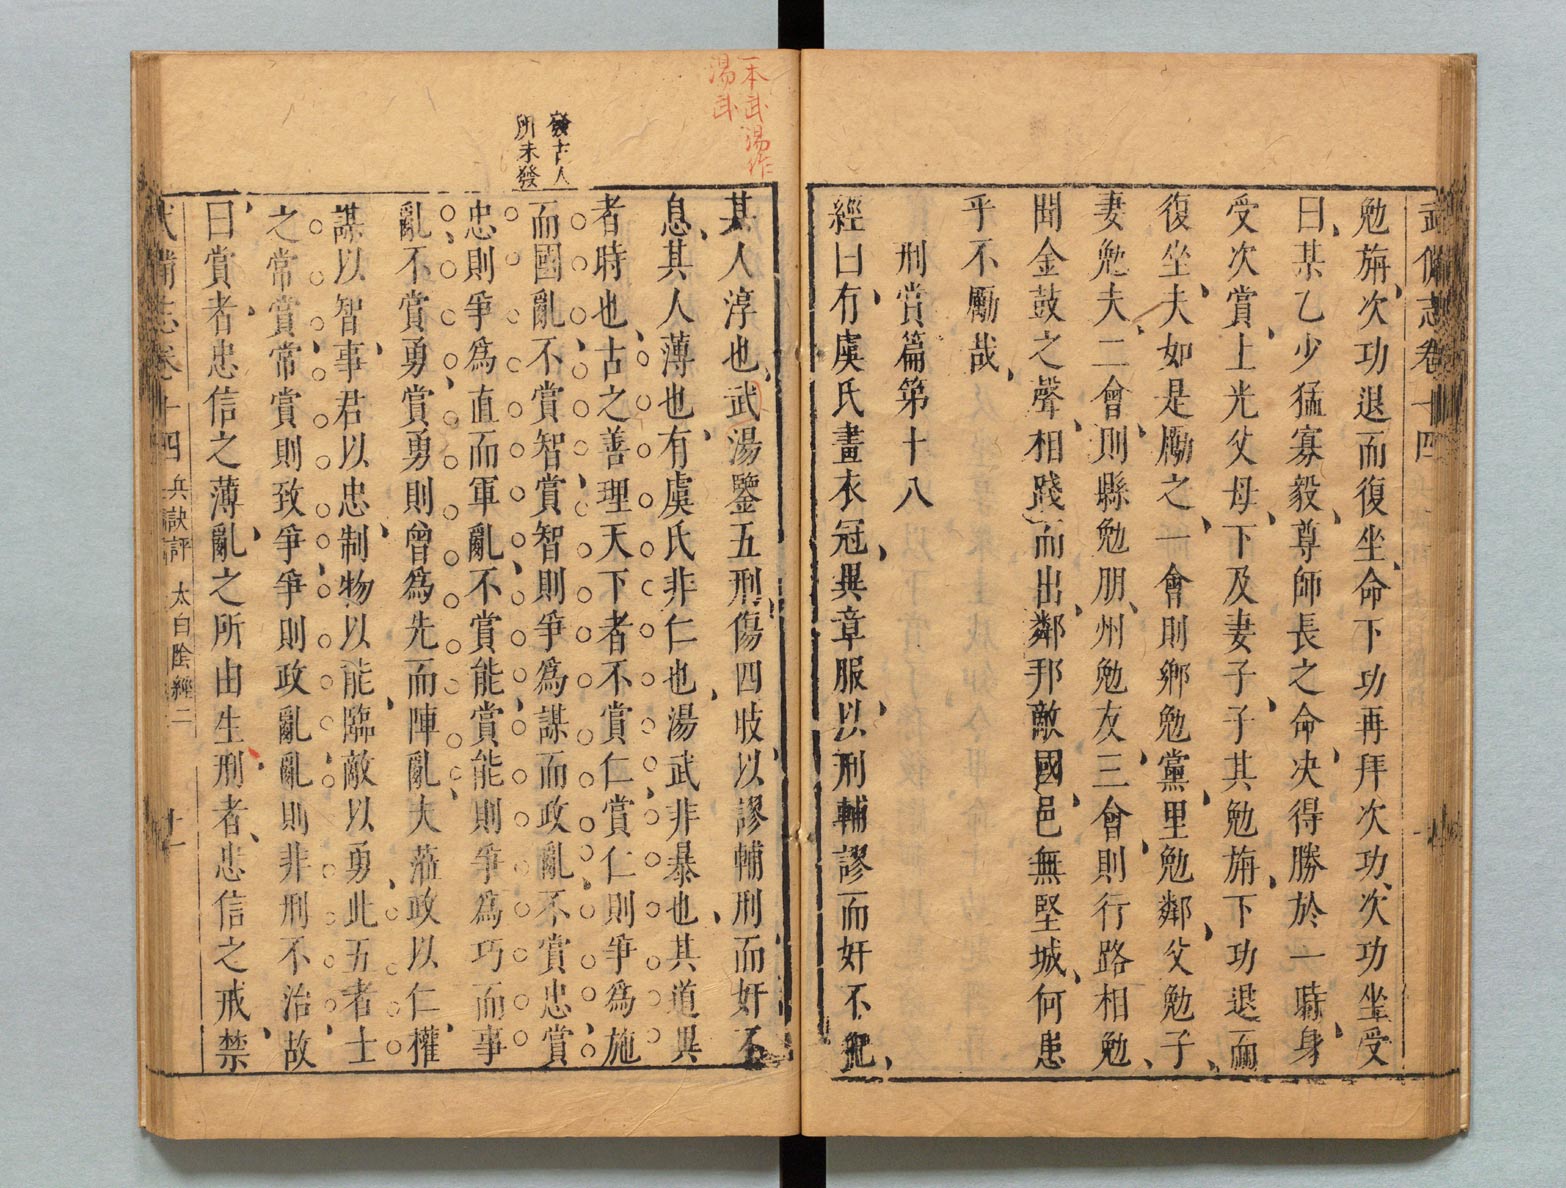 武備志卷十四
勉旃次功退而復坐命下功再拜次功次功坐受
曰某乙少猛寡毅尊師長之命决得勝於一時身
受次賞上光父母下及妻子子其勉旃下功退而
復坐夫如是勵之一會則鄉勉黨里勉鄰父勉子
妻勉夫二會則縣勉朋州勉友三會則行路相勉
聞金鼓之聲相踐而出鄰邦敵國邑無堅城何患
乎不勵哉
刑賞篇第十八
經曰有虞氏畫衣冠異章服以刑輔謬而奸不犯
一本武湯作
湯武
其人淳也武湯鑒五刑傷四肢以謬輔刑而奸不
息其人薄也有虞氏非仁也湯武非暴也其道異
者時也古之善理天下者不賞仁賞仁則爭爲施
發古人
所未發
而國亂不賞智賞智則爭爲謀而政亂不賞忠賞
忠則爭爲直而軍亂不賞能賞能則爭爲巧而事
亂不賞勇賞勇則曾爲先而陣亂夫蒞政以仁權
謀以智事君以忠制物以能臨敵以勇此五者士
之常賞常賞則致爭爭則政亂亂則非刑不治故
曰賞者忠信之薄亂之所由生刑者忠信之戒禁
武備志卷十四 兵訣評 太白陰經二 十一